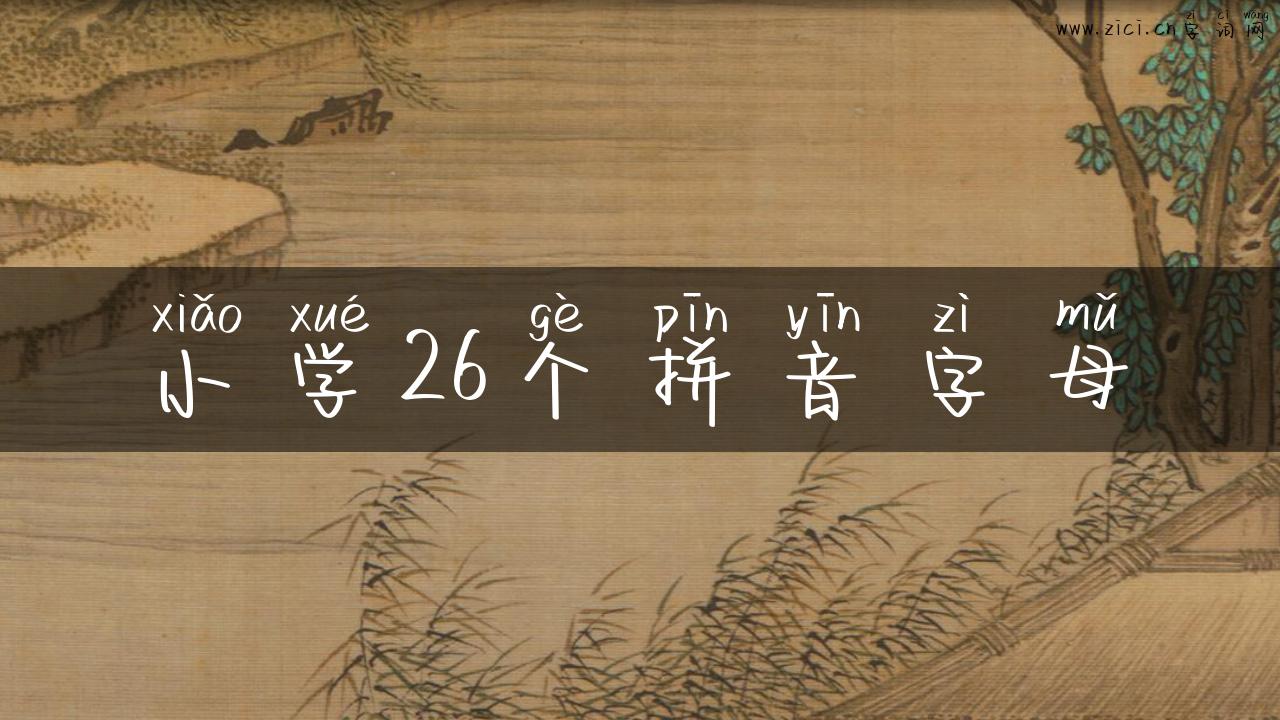 zì cí wǎng
www.zici.cn字词网
xiǎo xué gè pīn yīn zì mǔ
小学26个拼音字母